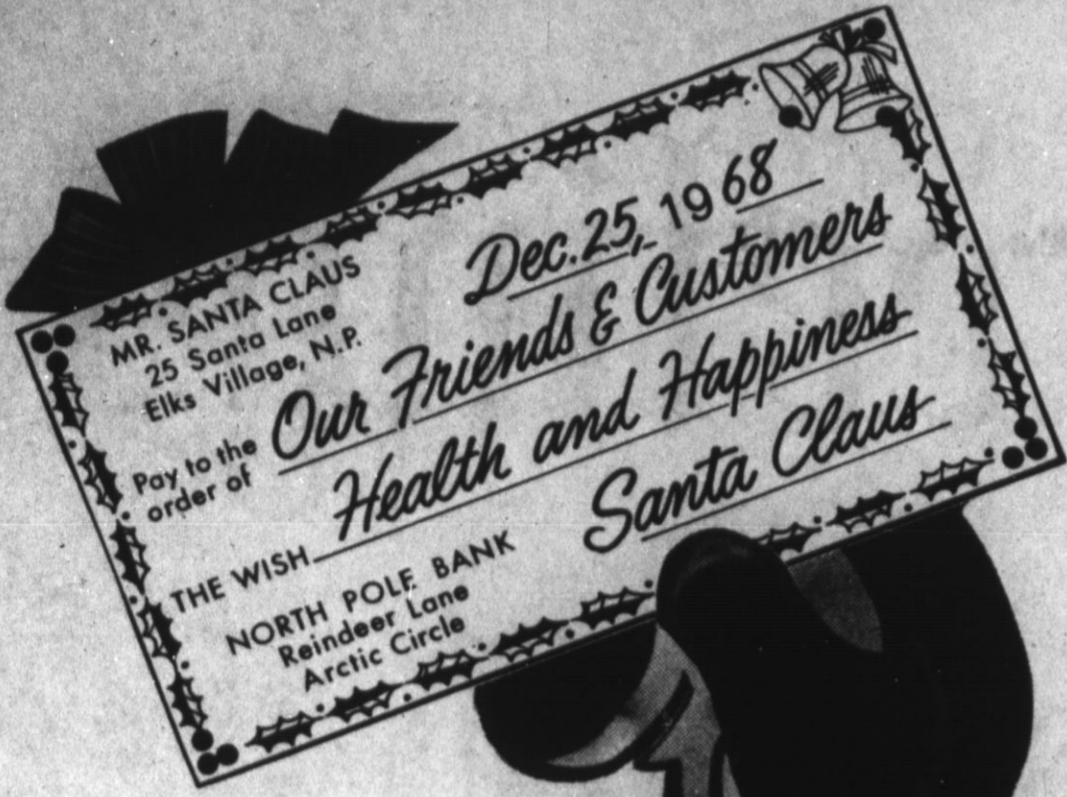 MR. SANTA CLAUS
25 Santa Lane
Elks Village, N.P.
Dec. 25, 1968
Pay to the
order of
Our Friends & Customers
THE WISH Health and Happiness
NORTH POLE BANK
Reindeer Lane
Arctic Circle
Santa Claus